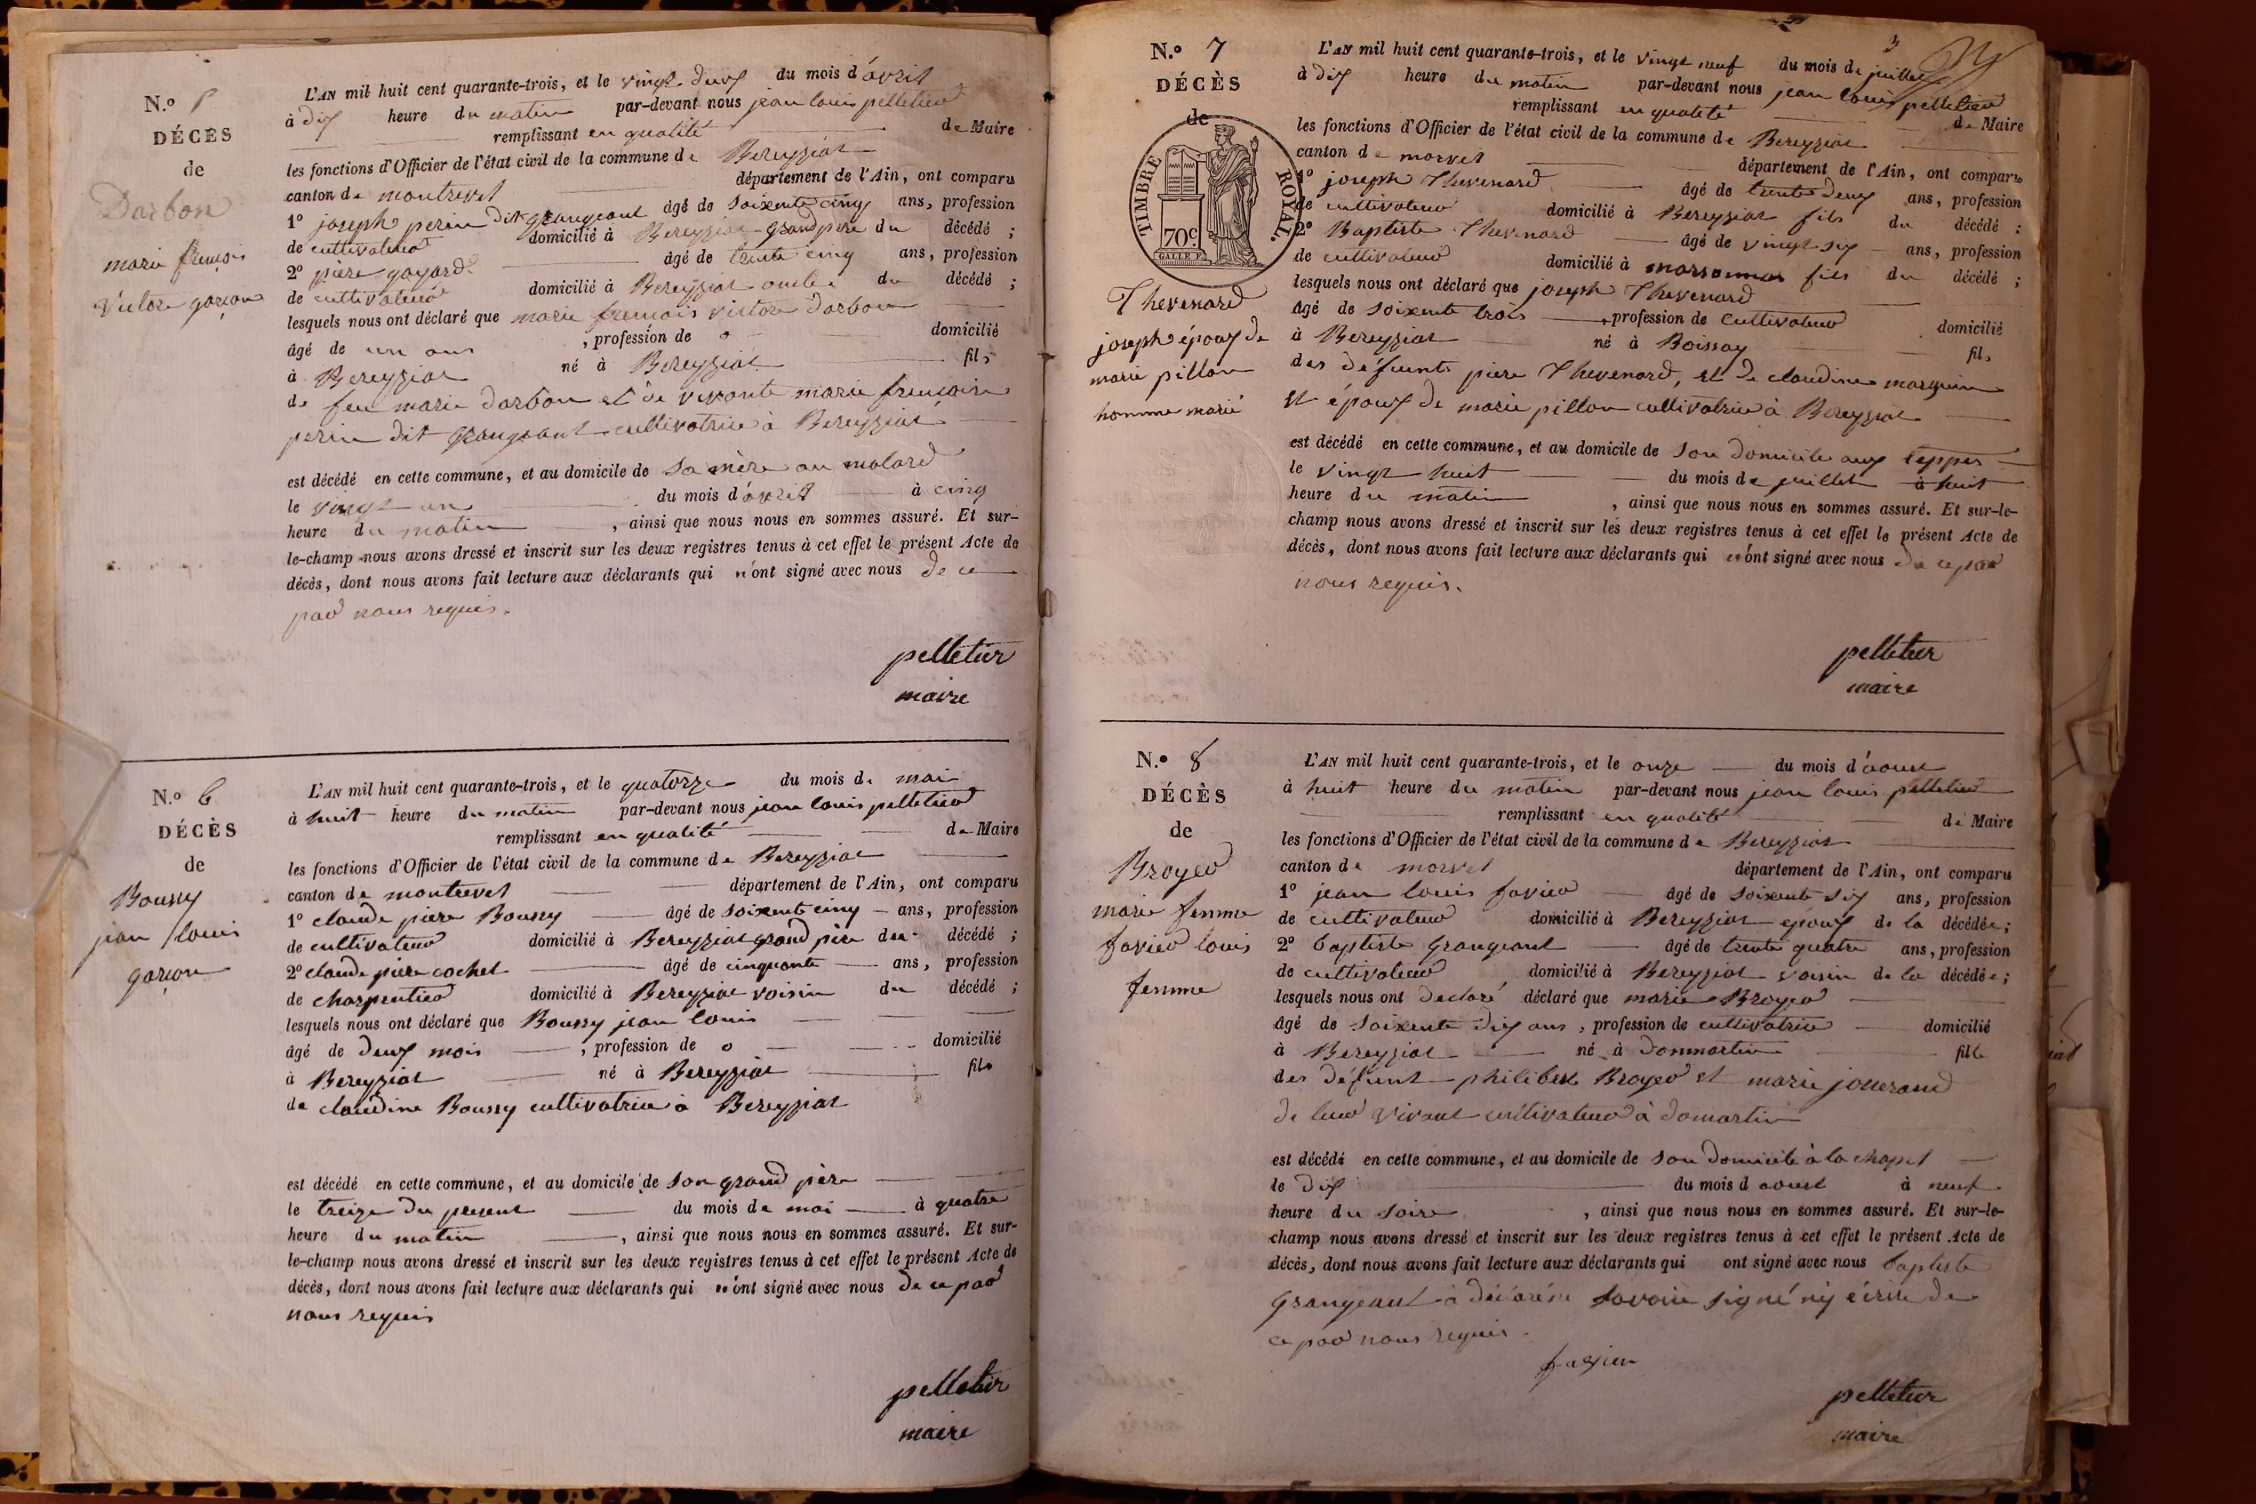 N.o 5
DÉCÈS
de
Darbon
marie françois
Victore garçon
L'AN mil huit cent quarante-trois, et le vingt deux du mois d'avril
à dix heure du matin par-devant nous jean louis pelletier
remplissant en qualité de Maire
les fonctions d'Officier de l'état civil de la commune de Bereyziat
canton de montrevel département de l'Ain, ont comparu
1o joseph perin dit grangeant âgé de soixente cinq ans, profession
de cultivateur domicilié à Bereyziat grand pere du décédé ;
2o piere gayard âgé de trente cinq ans, profession
de cultivateur domicilié à Bereyziat oncle du décédé ;
lesquels nous ont déclaré que marie francois victore darbon
âgé de un ans , profession de o domicilié
à Bereyziat né à Bereyziat fils
de feu marie darbon et de vivante marie francoise
perin dit grangeant cultivatrice à Bereyziat
est décédé en cette commune, et au domicile de sa mère au molard
le vingt un du mois d'avril à cinq
heure du matin , ainsi que nous nous en sommes assuré. Et sur-
le-champ nous avons dressé et inscrit sur les deux registres tenus à cet effet le présent Acte de
décès, dont nous avons fait lecture aux déclarants qui n'ont signé avec nous de ce
par nous requis.
pelletier
maire
N.o 6
DÉCÈS
de
Boussy
jean louis
garçon
L'AN mil huit cent quarante-trois, et le quatorze du mois de mai
à huit heure du matin par-devant nous jean louis pelletier
remplissant en qualité de Maire
les fonctions d'Officier de l'état civil de la commune de Bereyziat
canton de montrevel département de l'Ain, ont comparu
1o claude piere Boussy âgé de soixente cinq ans, profession
de cultivateur domicilié à Bereyziat grand père du décédé ;
2o claude piere cochet âgé de cinquante ans, profession
de charpentier domicilié à Bereyziat voisin du décédé ;
lesquels nous ont déclaré que Boussy jean louis
âgé de deux mois , profession de o domicilié
à Bereyziat né à Bereyziat fils
de claudine Boussy cultivatrice à Bereyziat
est décédé en cette commune, et au domicile de son grand père
le treize du present du mois de mai à quatre
heure du matin , ainsi que nous nous en sommes assuré. Et sur-
le-champ nous avons dressé et inscrit sur les deux registres tenus à cet effet le présent Acte de
décès, dont nous avons fait lecture aux déclarants qui n'ont signé avec nous de ce par
nous requis
pelletier
maire
3
N.o 7
DÉCÈS
de
TIMBRE ROYAL.
70c
Thevenard
joseph époux de
marie pillon
homme marié
L'AN mil huit cent quarante-trois, et le vingt neuf du mois de juillet
à dix heure du matin par-devant nous jean louis pelletier
remplissant en qualité de Maire
les fonctions d'Officier de l'état civil de la commune de Bereyziat
canton de morvel département de l'Ain, ont comparu
1o joseph Thevenard âgé de trente deux ans, profession
de cultivateur domicilié à Bereyziat fils du décédé :
2o Baptiste Thevenard âgé de vingt six ans, profession
de cultivateur domicilié à marsonnas fils du décédé ;
lesquels nous ont déclaré que joseph Thevenard
âgé de soixente trois , profession de cultivateur domicilié
à Bereyziat né à Boissey fils
des défunts piere Thevenard, et de claudine marguin
et époux de marie pillon cultivatrice à Bereyziat
est décédé en cette commune, et au domicile de son domicile aux teppes
le vingt huit du mois de juillet à huit
heure du matin , ainsi que nous nous en sommes assuré. Et sur-le-
champ nous avons dressé et inscrit sur les deux registres tenus à cet effet le présent Acte de
décès, dont nous avons fait lecture aux déclarants qui n'ont signé avec nous de ce par
nous requis.
pelletier
maire
N.o 8
DÉCÈS
de
Broyer
marie femme
favier louis
femme
L'AN mil huit cent quarante-trois, et le onze du mois d'aoust
à huit heure du matin par-devant nous jean louis pelletier
remplissant en qualité de Maire
les fonctions d'Officier de l'état civil de la commune de Bereyziat
canton de morvel département de l'Ain, ont comparu
1o jean louis favier âgé de soixente six ans, profession
de cultivateur domicilié à Bereyziat époux de la décédée ;
2o baptiste grangeant âgé de trente quatre ans, profession
de cultivateur domicilié à Bereyziat voisin de la décédée ;
lesquels nous ont declaré déclaré que marie Broyer
âgé de soixente dix ans , profession de cultivatrice domicilié
à Bereyziat né à donmartin fille
des défunt philibert Broyer et marie jouerand
de leur vivant cultivateur à domartin
est décédé en cette commune, et au domicile de son domicile à la chapel
le dix du mois d aoust à neuf
heure du soire , ainsi que nous nous en sommes assuré. Et sur-le-
champ nous avons dressé et inscrit sur les deux registres tenus à cet effet le présent Acte de
décès, dont nous avons fait lecture aux déclarants qui ont signé avec nous baptiste
grangeant à déclaré ne savoire signé ny écrire de
ce par nous requis.
favier
pelletier
maire